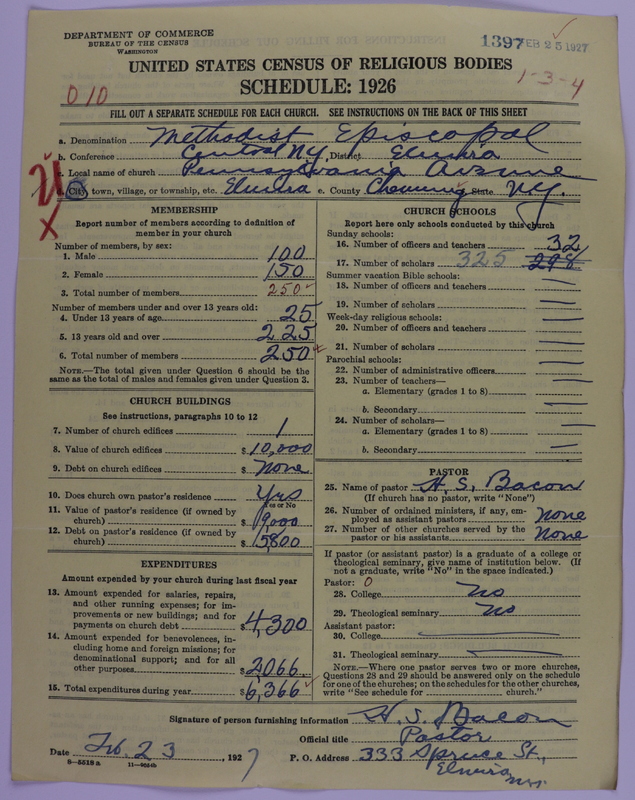 DEPARTMENT OF COMMERCE
BUREAU OF THE CENSUS
WASHINGTON
1397 FEB 25 1927
UNITED STATES CENSUS OF RELIGIOUS BODIES
SCHEDULE: 1926
010
1-3-4
FILL OUT A SEPARATE SCHEDULE FOR EACH CHURCH. SEE INSTRUCTIONS ON THE BACK OF THIS SHEET
a. Denomination Methodist Episcopal
b. Conference Central N.Y. District Elmira
c. Local name of church Pennsylvania Avenue
d. City, town, village, or township, etc. Elmira e. County Chemung State N.Y.
X
MEMBERSHIP
Report number of members according to definition of
member in your church
Number of members, by sex:
1. Male 100
2. Female 150
3. Total number of members 250
Number of members under and over 13 years old:
4. Under 13 years of age 25
5. 13 years old and over 225
6. Total number of members 250
NOTE.—The total given under Question 6 should be the
same as the total of males and females given under Question 3.
CHURCH BUILDINGS
See instructions, paragraphs 10 to 12
7. Number of church edifices 1
8. Value of church edifices $ 10,000
9. Debt on church edifices $ None
10. Does church own pastor's residence Yes
Yes or No
11. Value of pastor's residence (if owned by
church) $ 9,000
12. Debt on pastor's residence (if owned by
church) $ 5800
EXPENDITURES
Amount expended by your church during last fiscal year
13. Amount expended for salaries, repairs,
and other running expenses; for im-
provements or new buildings; and for
payments on church debt $ 4,300
14. Amount expended for benevolences, in-
cluding home and foreign missions; for
denominational support; and for all
other purposes $ 2,066
15. Total expenditures during year $ 6,366
CHURCH SCHOOLS
Report here only schools conducted by this church
Sunday schools:
16. Number of officers and teachers 32
17. Number of scholars 325 298
Summer vacation Bible schools:
18. Number of officers and teachers —
19. Number of scholars —
Week-day religious schools:
20. Number of officers and teachers —
21. Number of scholars —
Parochial schools:
22. Number of administrative officers —
23. Number of teachers—
a. Elementary (grades 1 to 8) —
b. Secondary —
24. Number of scholars—
a. Elementary (grades 1 to 8) —
b. Secondary —
PASTOR
25. Name of pastor H. S. Bacon
(If church has no pastor, write "None")
26. Number of ordained ministers, if any, em-
ployed as assistant pastors None
27. Number of other churches served by the
pastor or his assistants None
If pastor (or assistant pastor) is a graduate of a college or
theological seminary, give name of institution below. (If
not a graduate, write "No" in the space indicated.)
Pastor: 0
28. College No
29. Theological seminary No
Assistant pastor:
30. College —
31. Theological seminary —
NOTE.—Where one pastor serves two or more churches,
Questions 28 and 29 should be answered only on the schedule
for one of the churches; on the schedules for the other churches,
write "See schedule for church."
Signature of person furnishing information H. S. Bacon
Official title Pastor
Date Feb. 23, 1927
P. O. Address 333 Spruce St.,
Elmira N.Y.
8-5518 a